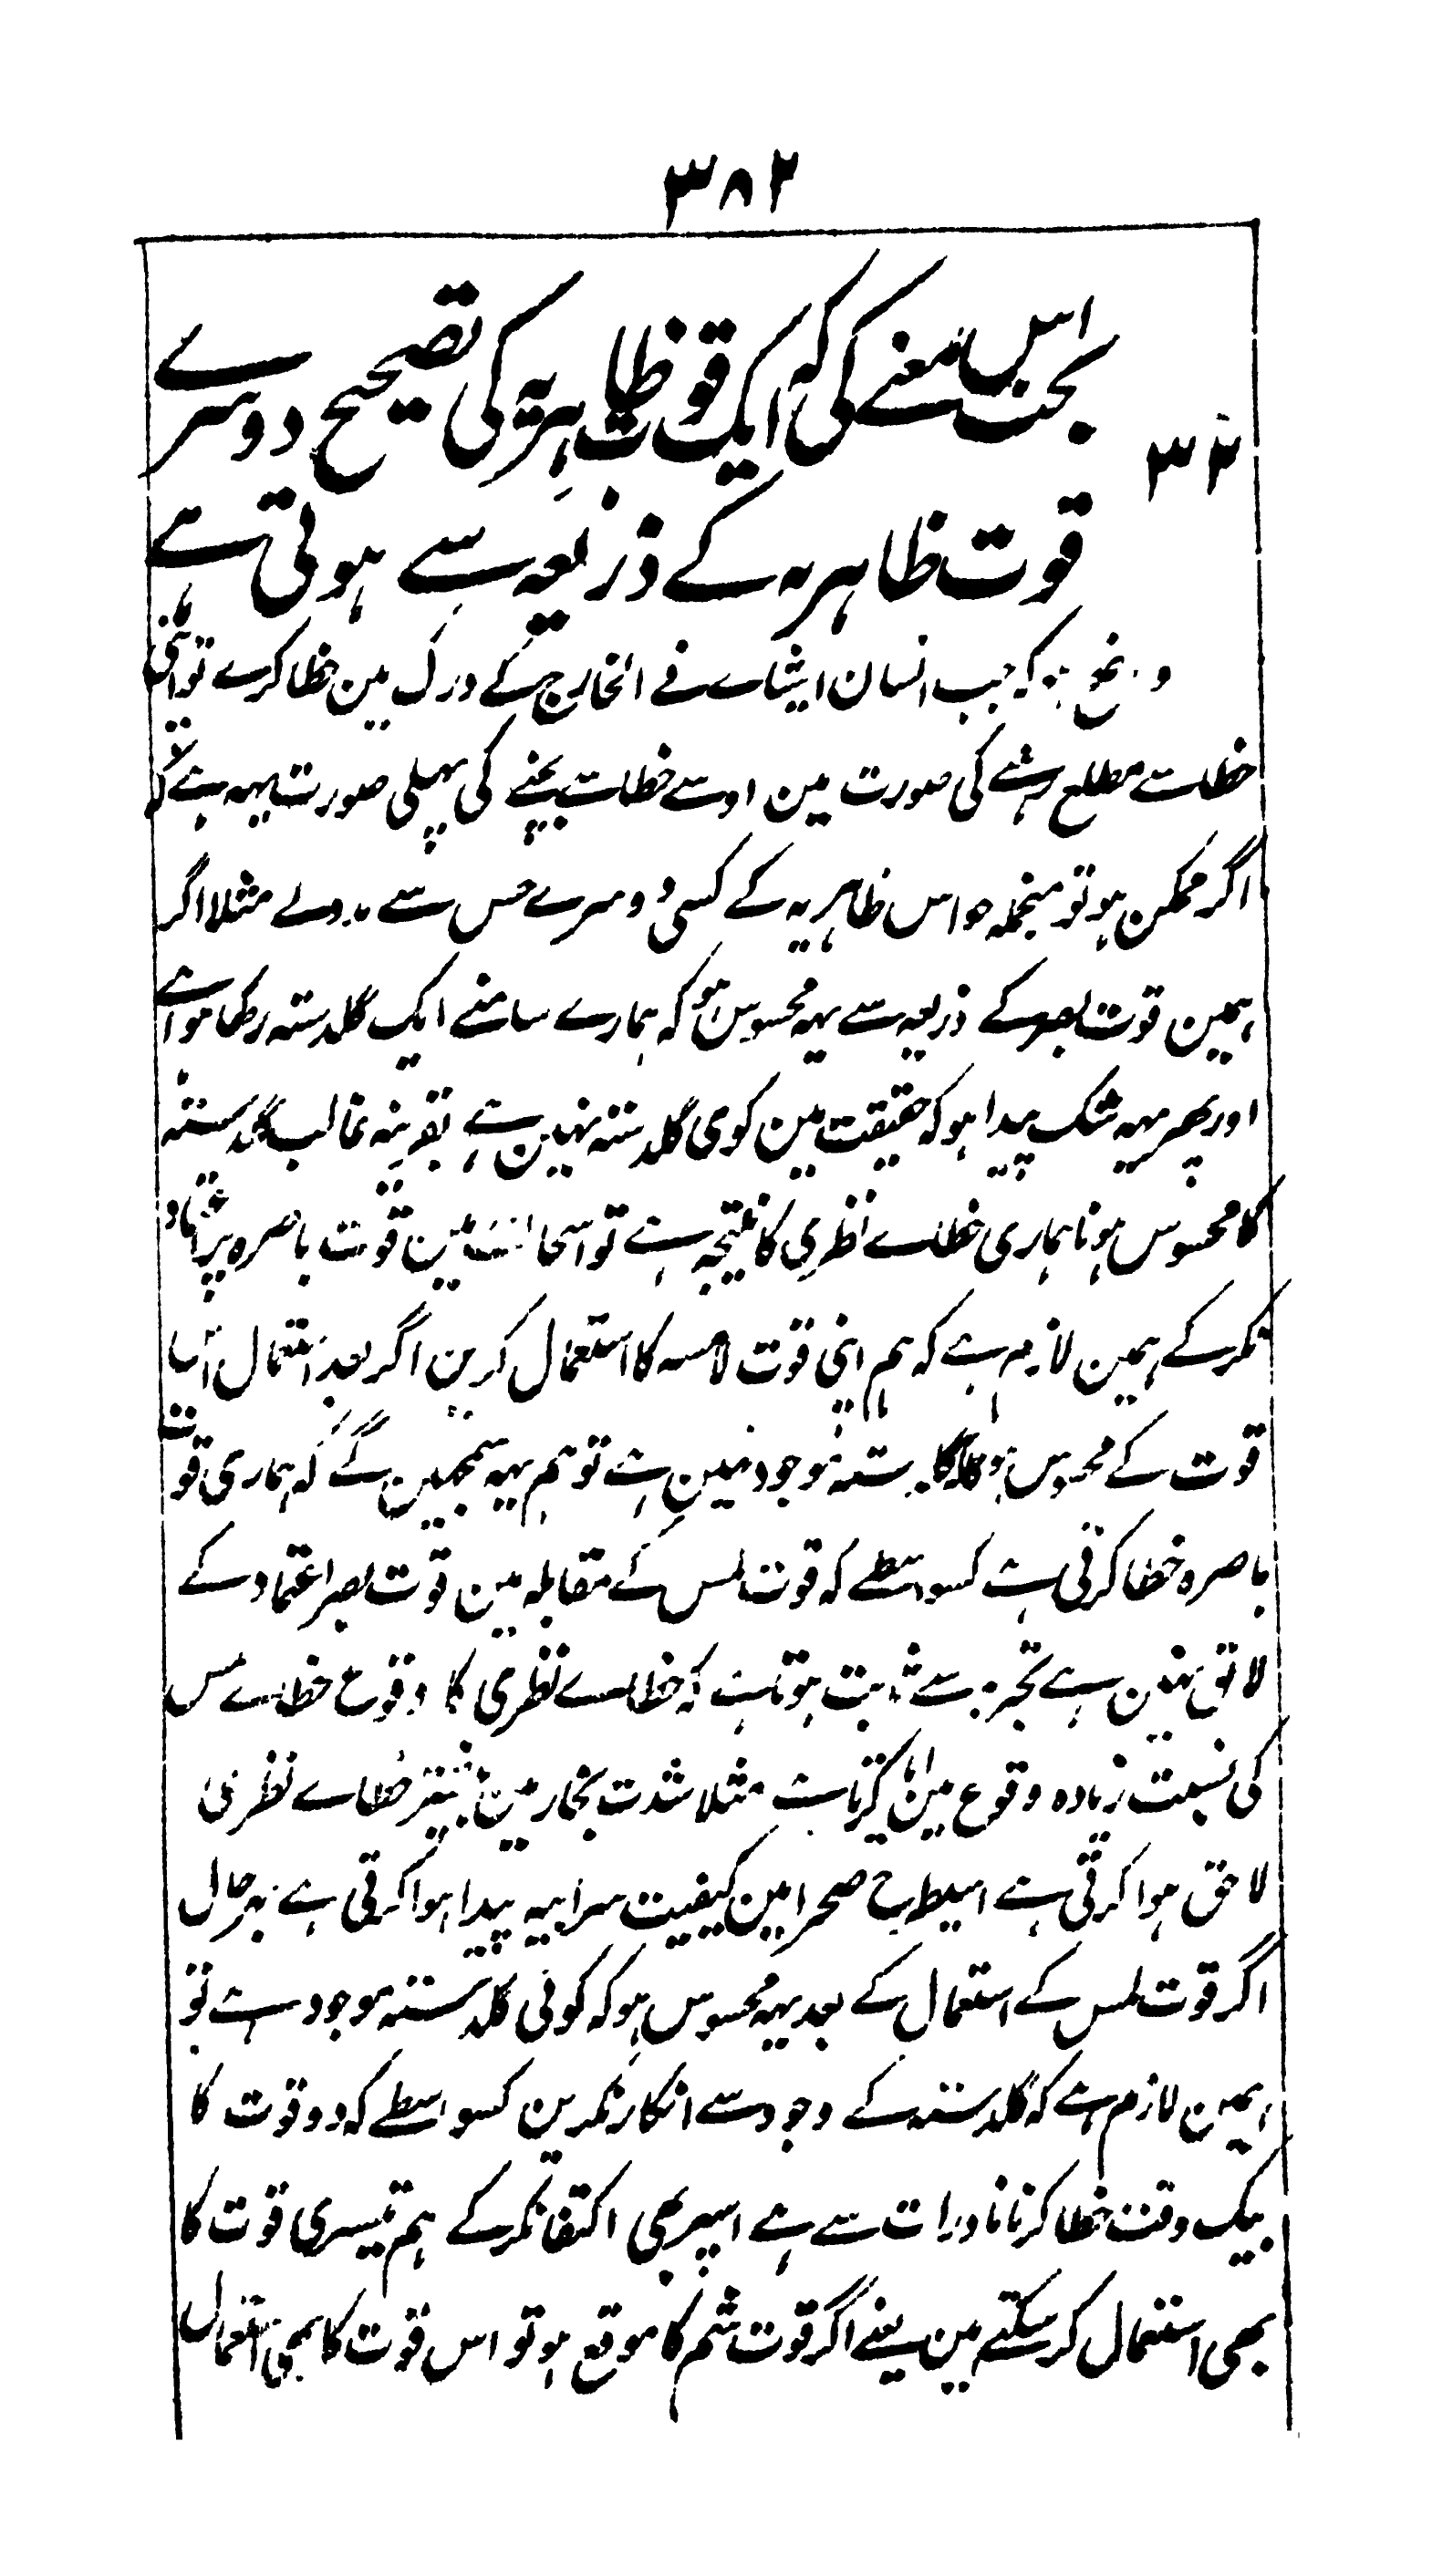 ۳۸۲
بحث اس معنے کی کہ ایک قوت ظاہریہ کی تصحیح دوسرے
۳۲
قوت ظاہریہ کے ذریعہ سے ہوتی ہے
واضح ہو کہ جب انسان اشیاے فے الخارج کے درک مین خطا کرے تو اپنی
خطا سے مطلع ہونے کی صورت مین اوسے خطا سے بچنے کی پہلی صورت یہہ ہے کہ
اگر ممکن ہو تو منجملہ حواس ظاہریہ کے کسی دوسرے حس سے مدد لے مثلا اگر
ہمین قوت بصر کے ذریعہ سے یہہ محسوس ہو کہ ہمارے سامنے ایک گلدستہ رکھا ہوا ہے
اور پھر یہہ شک پیدا ہو کہ حقیقت مین کوی گلدستہ نہین ہے بقرینہ غالب گلدستہ
کا محسوس ہونا ہماری خطاے نظری کا نتیجہ ہے تو اسحالت مین قوت باصرہ پر اعتماد
نکر کے ہمین لازم ہے کہ ہم اپنی قوت لامسہ کا استعمال کرین اگر بعد استعمال اس
قوت کے محسوس ہو کہ گلدستہ موجود نہین ہے تو ہم یہہ سمجھین گے کہ ہماری قوت
باصرہ خطا کرتی ہے کسواسطے کہ قوت لمس کے مقابلہ مین قوت بصر اعتماد کے
لائق نہین ہے تجربہ سے ثابت ہوتا ہے کہ خطاے نظری کا وقوع خطاے لمس
کی نسبت زیادہ وقوع مین آیا کرتا ہے مثلا شدت بخار مین بیشتر خطاے نظری
لاحق ہوا کرتی ہے اسیطرح صحرا مین کیفیت سرابیہ پیدا ہوا کرتی ہے بہر حال
اگر قوت لمس کے استعمال کے بعد یہہ محسوس ہو کہ کوئی گلدستہ موجود ہے تو
ہمین لازم ہے کہ گلدستہ کے وجود سے انکار نکرین کسواسطے کہ دو قوت کا
بیک وقت خطا کرنا نادرات سے ہے اسپر بھی اکتفا نکر کے ہم تیسری قوت کا
بھی استعمال کر سکتے ہین یعنے اگر قوت شم کا موقع ہو تو اس قوت کا بھی استعمال